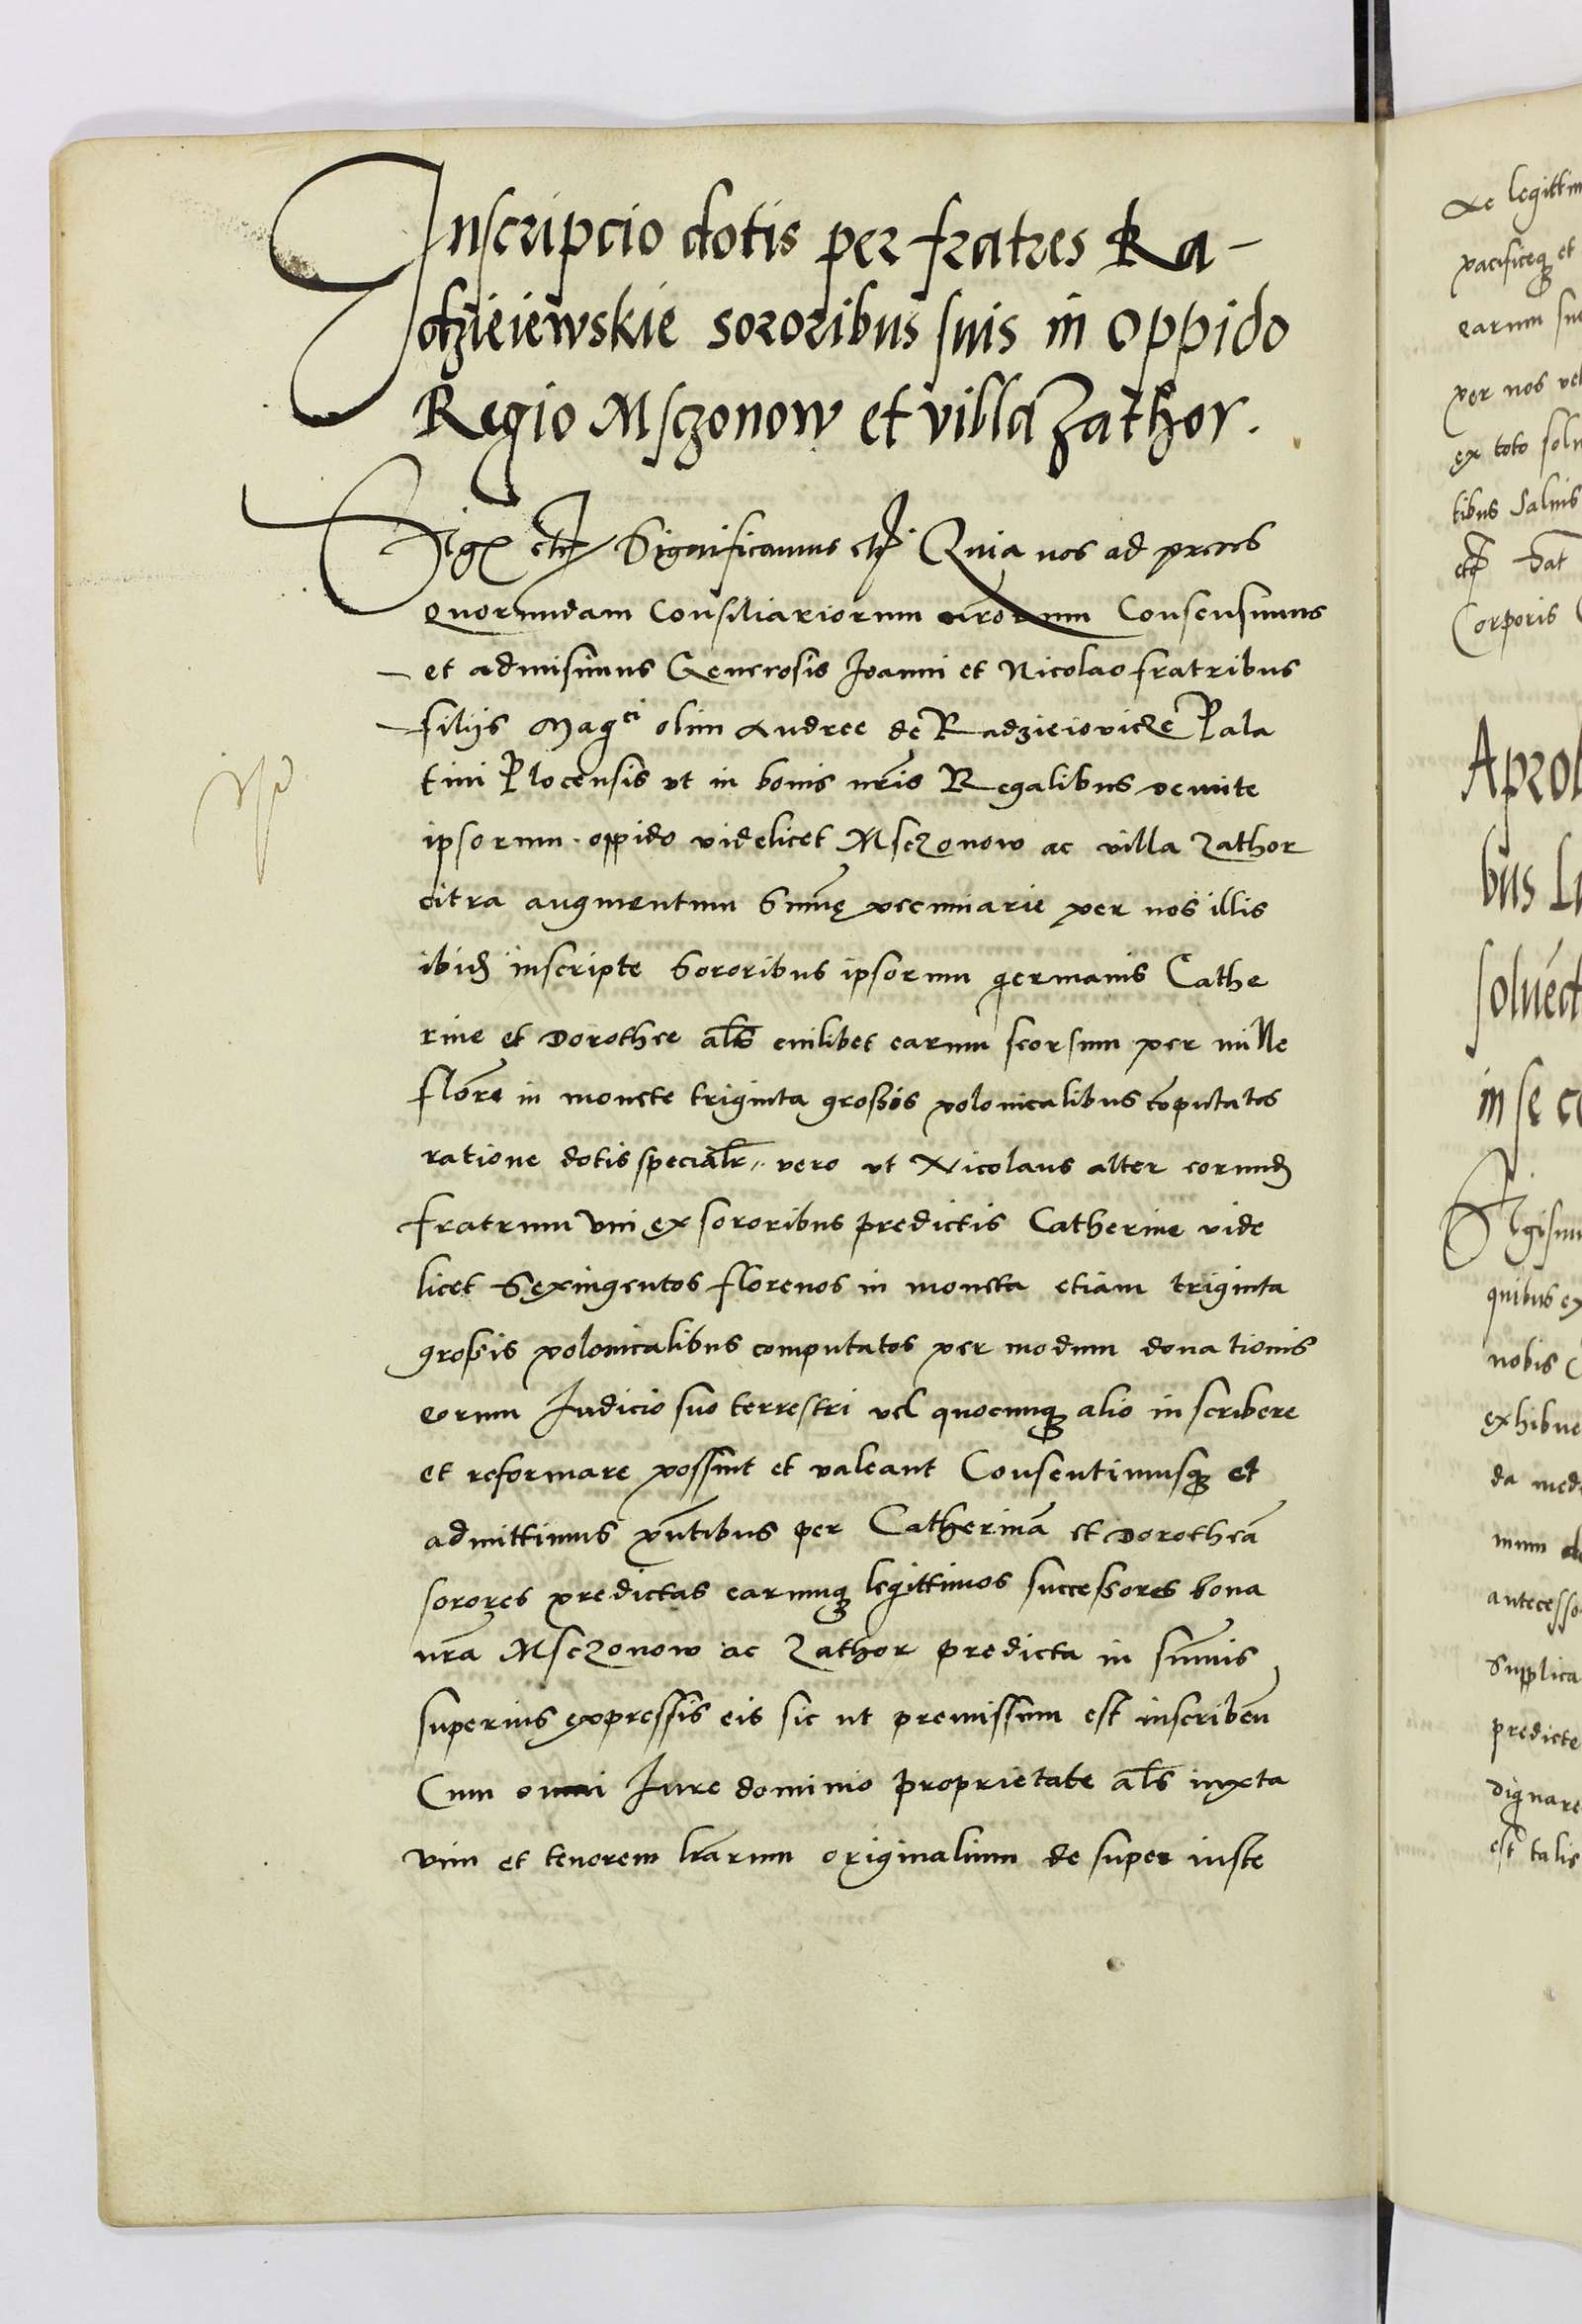 Inscripcio dotis per fratres Ra-
dzieiewskie sororibus suis in oppido
Regio Msczonow et villa Zathor.
Sigs etc Significamus etc Quia nos ad preces
quorundam Consiliariorum nrorum Consensimus
et admisimus Generosis Joanni et Nicolao fratribus
filiis Magci olim Andree de Radzieiovicze Pala
tini Plocensis ut in bonis nris Regalibus
ipsorum oppido videlicet Msczonow ac villa Zathor
citra augmentum Summę pecuniarie per nos illis
ibid inscripte Sororibus ipsorum germanis Cathe
rine et Dorothee als cuilibet earum seorsum per mille
flore in monete triginta grossis polonicalibus coputatos
ratione dotis specialr vero ut Nicolaus alter eorund
fratrum uni ex sororibus predictis Catherine vide
licet Sexingentos florenos in moneta etiam triginta
grossis polonicalibus computatos per modum donationis
eorum Judicio suo terrestri vel quocunq alio inscribere
et reformare possint et valeant Consentimusq et
admittimus pntibus per Catherinā et Dorotheā
sorores predictas earumq legittimos successores bona
nra Msczonow ac Zathor predicta in summis
superius expressis eis sic ut premissum est inscriben
Cum omni Jure dominio proprietate als iuxta
vim et tenorem lrarum originalium de super iuste
De legittim
pacificeq et
earum suc
per nos vel
ex toto solu
tibus Salvis
etc Dat
Corporis
Aprob
bus Li
soluēd
in se co
Sigismu
quibus ex
nobis
exhibue
da medi
num
antecesso
Supplica
predicte
dignare
est talis